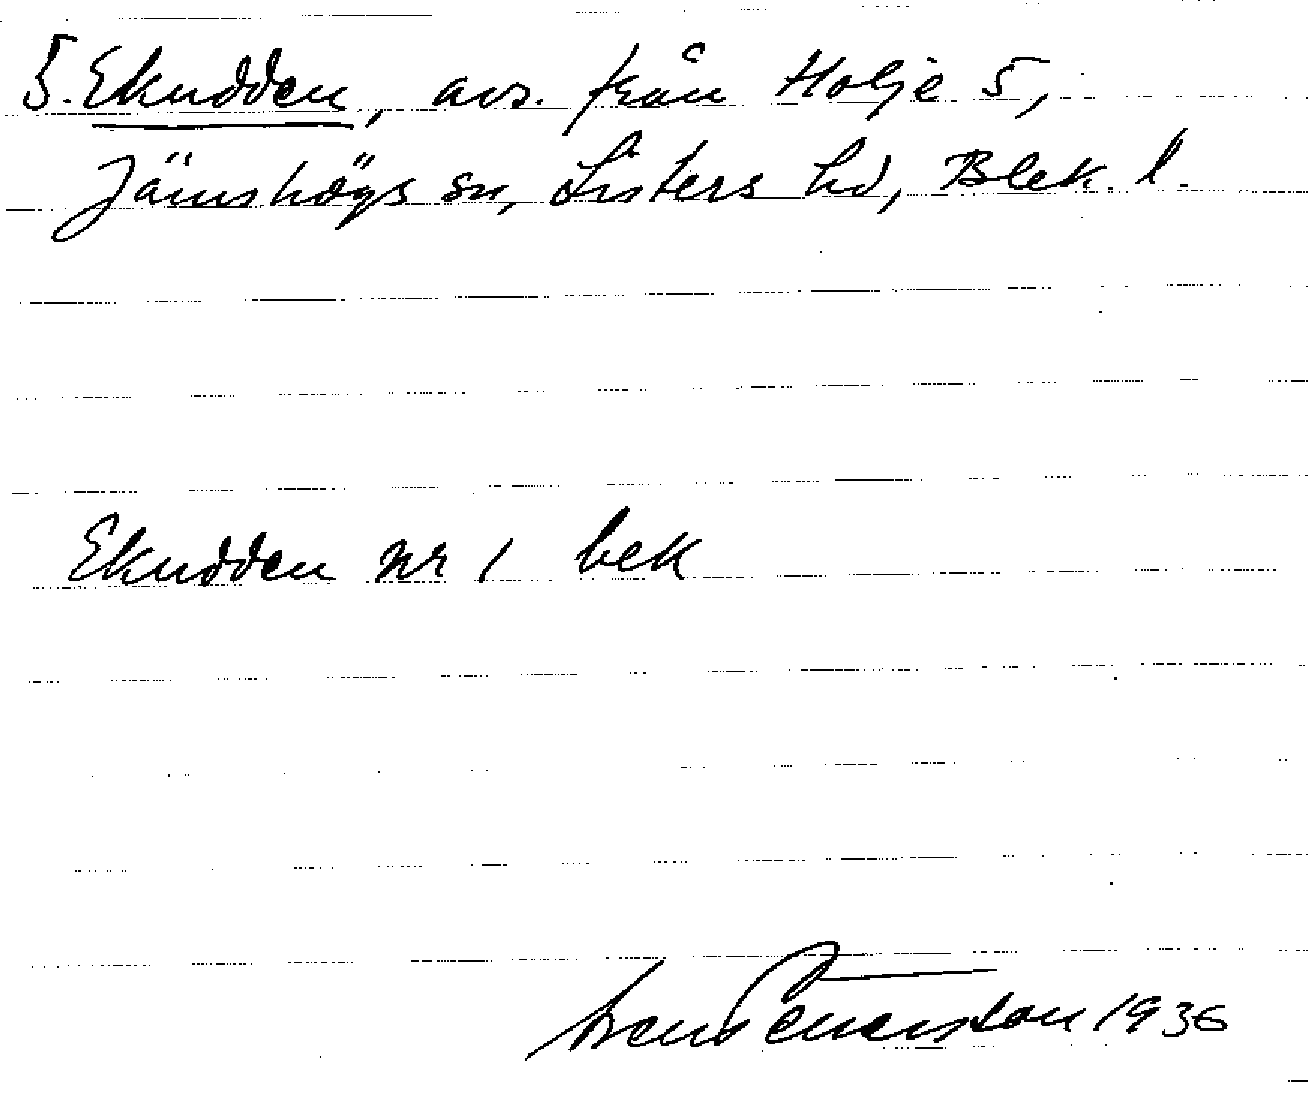 5. Ekudden, avs. från Holje 5,
Jämshögs sn, Listers hd, Blek. l.
Ekudden nr 1 bek
1936